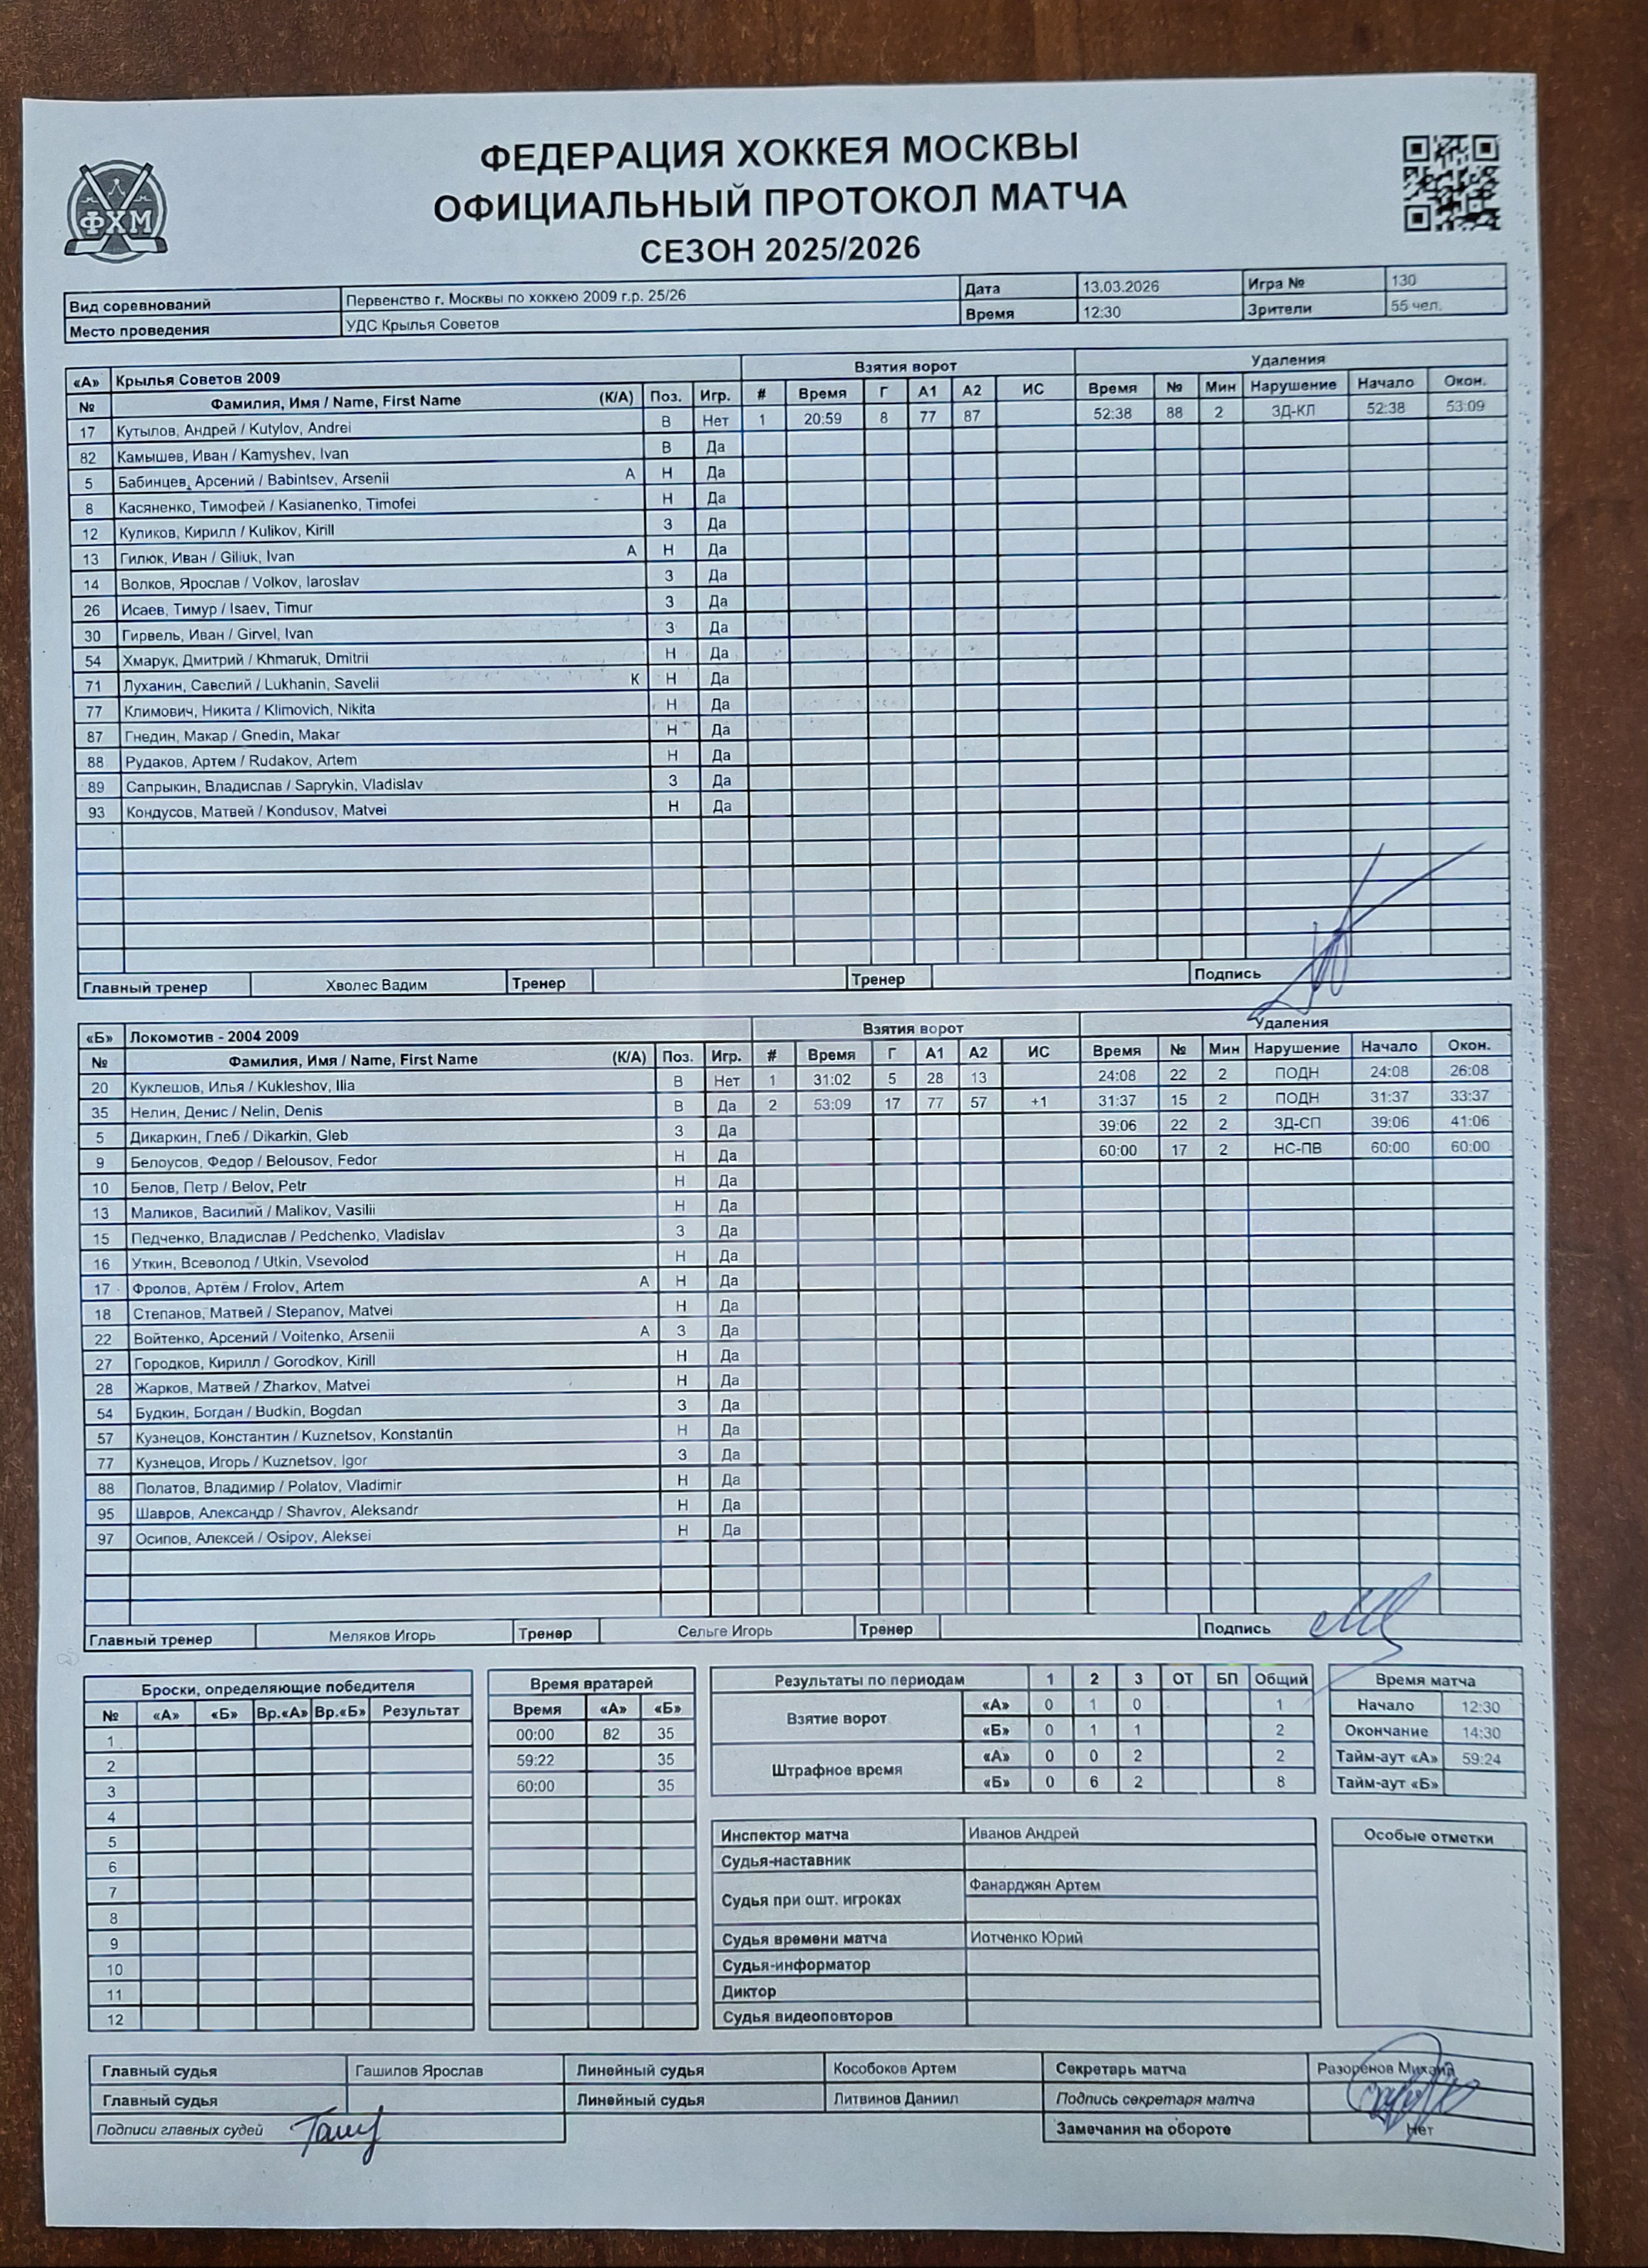 ФЕДЕРАЦИЯ ХОККЕЯ МОСКВЫ
ОФИЦИАЛЬНЫЙ ПРОТОКОЛ МАТЧА
СЕЗОН 2025/2026
ФХМ
Вид соревнований Первенство г. Москвы по хоккею 2009 г.р. 25/26 Дата 13.03.2026 Игра № 130
Место проведения УДС Крылья Советов Время 12:30 Зрители 55 чел.
«А» Крылья Советов 2009 Взятия ворот Удаления
№ Фамилия, Имя / Name, First Name (К/А) Поз. Игр. # Время Г А1 А2 ИС Время № Мин Нарушение Начало Окон.
17 Кутылов, Андрей / Kutylov, Andrei В Нет 1 20:59 8 77 87 52:38 88 2 ЗД-КЛ 52:38 53:09
82 Камышев, Иван / Kamyshev, Ivan В Да
5 Бабинцев, Арсений / Babintsev, Arsenii А Н Да
8 Касяненко, Тимофей / Kasianenko, Timofei Н Да
12 Куликов, Кирилл / Kulikov, Kirill З Да
13 Гилюк, Иван / Giliuk, Ivan А Н Да
14 Волков, Ярослав / Volkov, Iaroslav З Да
26 Исаев, Тимур / Isaev, Timur З Да
30 Гирвель, Иван / Girvel, Ivan З Да
54 Хмарук, Дмитрий / Khmaruk, Dmitrii Н Да
71 Луханин, Савелий / Lukhanin, Savelii К Н Да
77 Климович, Никита / Klimovich, Nikita Н Да
87 Гнедин, Макар / Gnedin, Makar Н Да
88 Рудаков, Артем / Rudakov, Artem Н Да
89 Сапрыкин, Владислав / Saprykin, Vladislav З Да
93 Кондусов, Матвей / Kondusov, Matvei Н Да
Главный тренер Хволес Вадим Тренер Тренер Подпись
«Б» Локомотив - 2004 2009 Взятия ворот Удаления
№ Фамилия, Имя / Name, First Name (К/А) Поз. Игр. # Время Г А1 А2 ИС Время № Мин Нарушение Начало Окон.
20 Куклешов, Илья / Kukleshov, Ilia В Нет 1 31:02 5 28 13 24:08 22 2 ПОДН 24:08 26:08
35 Нелин, Денис / Nelin, Denis В Да 2 53:09 17 77 57 +1 31:37 15 2 ПОДН 31:37 33:37
5 Дикаркин, Глеб / Dikarkin, Gleb З Да 39:06 22 2 ЗД-СП 39:06 41:06
9 Белоусов, Федор / Belousov, Fedor Н Да 60:00 17 2 НС-ПВ 60:00 60:00
10 Белов, Петр / Belov, Petr Н Да
13 Маликов, Василий / Malikov, Vasilii Н Да
15 Педченко, Владислав / Pedchenko, Vladislav З Да
16 Уткин, Всеволод / Utkin, Vsevolod Н Да
17 Фролов, Артём / Frolov, Artem А Н Да
18 Степанов, Матвей / Stepanov, Matvei Н Да
22 Войтенко, Арсений / Voitenko, Arsenii А З Да
27 Городков, Кирилл / Gorodkov, Kirill Н Да
28 Жарков, Матвей / Zharkov, Matvei Н Да
54 Будкин, Богдан / Budkin, Bogdan З Да
57 Кузнецов, Константин / Kuznetsov, Konstantin Н Да
77 Кузнецов, Игорь / Kuznetsov, Igor З Да
88 Полатов, Владимир / Polatov, Vladimir Н Да
95 Шавров, Александр / Shavrov, Aleksandr Н Да
97 Осипов, Алексей / Osipov, Aleksei Н Да
Главный тренер Меляков Игорь Тренер Сельге Игорь Тренер Подпись
Броски, определяющие победителя
№ «А» «Б» Вр.«А» Вр.«Б» Результат
1
2
3
4
5
6
7
8
9
10
11
12
Время вратарей
Время «А» «Б»
00:00 82 35
59:22 35
60:00 35
Результаты по периодам 1 2 3 ОТ БП Общий
Взятие ворот «А» 0 1 0 1
«Б» 0 1 1 2
Штрафное время «А» 0 0 2 2
«Б» 0 6 2 8
Время матча
Начало 12:30
Окончание 14:30
Тайм-аут «А» 59:24
Тайм-аут «Б»
Инспектор матча Иванов Андрей
Судья-наставник
Судья при ошт. игроках Фанарджян Артем
Судья времени матча Иотченко Юрий
Судья-информатор
Диктор
Судья видеоповторов
Особые отметки
Главный судья Гашилов Ярослав Линейный судья Кособоков Артем Секретарь матча Разоренов Михаил
Главный судья Линейный судья Литвинов Даниил Подпись секретаря матча
Подписи главных судей Замечания на обороте Нет